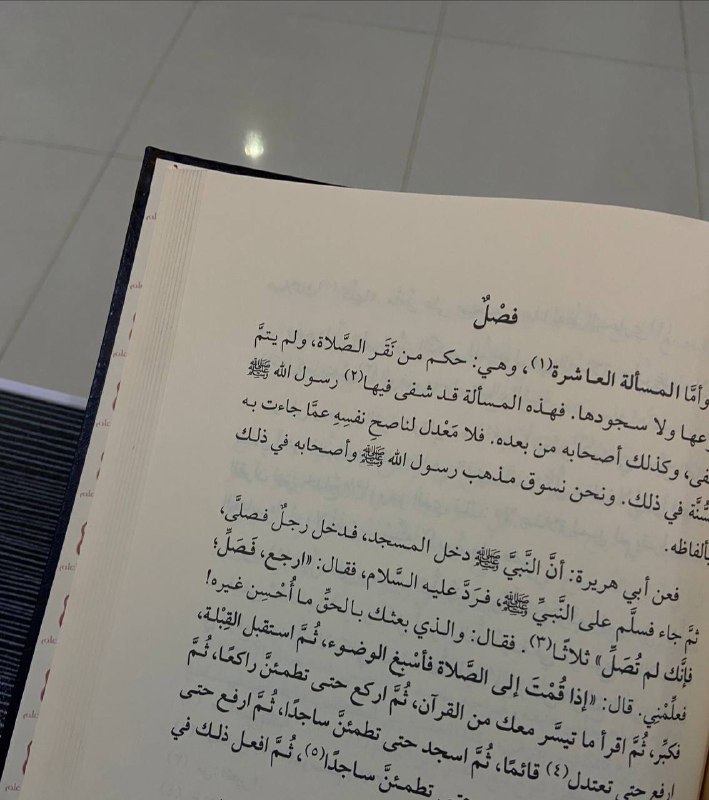 فصْلٌ
وأمَّا المسألة العاشرة(١)، وهي: حكم من نَقَر الصَّلاة، ولم يتمَّ
ولا سجودها. فهذه المسألة قد شفى فيها(٢) رسول الله ﷺ
وكذلك أصحابه من بعده. فلا مَعْدل لناصحِ نفسِهِ عمَّا جاءت به
السُّنَّة في ذلك. ونحن نسوق مذهب رسول الله ﷺ وأصحابه في ذلك
بألفاظه.
فعن أبي هريرة: أنَّ النَّبيَّ ﷺ دخل المسجد، فدخل رجلٌ فصلَّى،
ثمَّ جاء فسلَّم على النَّبيِّ ﷺ، فردَّ عليه السَّلام، فقال: «ارجع، فَصَلِّ؛
فإنَّك لم تُصَلِّ» ثلاثًا(٣). فقال: والذي بعثك بالحقِّ ما أُحْسِن غيره!
فعلِّمْني. قال: «إذا قُمْتَ إلى الصَّلاة فأسْبِغ الوضوء، ثُمَّ استقبل القِبْلة،
فكبِّر، ثُمَّ اقرأ ما تيسَّر معك من القرآن، ثُمَّ اركع حتى تطمئنَّ راكعًا، ثُمَّ
ارفع حتى تعتدل(٤) قائمًا، ثُمَّ اسجد حتى تطمئنَّ ساجدًا، ثُمَّ ارفع حتى
حتى تطمئنَّ ساجدًا(٥)، ثُمَّ افعل ذلك في